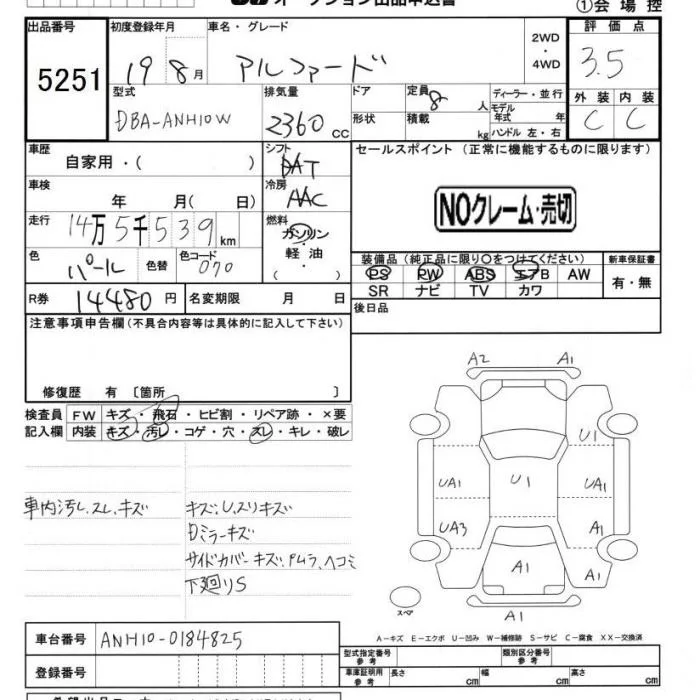 オークション出品申込書
①会場控
出品番号 初度登録年月 車名・グレード 2WD・4WD 評価点
5251 19 8月 アルファード 3.5
型式 排気量 ドア 定員 8 人 ディーラー・並行 外装 内装
DBA-ANH10W 2360 CC 形状 積載 kg モデル年式 年 ハンドル 左・右 C C
車歴 自家用・( ) シフト AT セールスポイント (正常に機能するものに限ります)
車検 年 月( 日) 冷房 AAC
NOクレーム・売切
走行 14万5千539km 燃料 ガソリン・軽油・( )
色 パール 色替 色コード 070
装備品 (純正品に限り○をつけてください) 新車保証書
PS PW ABS エアB AW 有・無
SR ナビ TV カワ
R券 14480 円 名変期限 月 日
後日品
注意事項申告欄 (不具合内容等は具体的に記入して下さい)
修復歴 有 〔箇所 〕
検査員 FW キズ・飛石・ヒビ割・リペア跡・×要
記入欄 内装 キズ・汚レ・コゲ・穴・スレ・キレ・破レ
車内汚レ、スレ、キズ
キズ、U、スリキズ
Dミラーキズ
サイドカバーキズ、Pムラ、ヘコミ
下廻りS
A2 A1
U1
UA1 U1 UA1
UA3 A1
A1 A1
スペア
A1
A-キズ E-エクボ U-凹み W-補修跡 S-サビ C-腐食 XX-交換済
車台番号 ANH10-0184825
型式指定番号 参考 類別区分番号 参考
登録番号
車庫証明用 参考 長さ cm 幅 cm 高さ cm